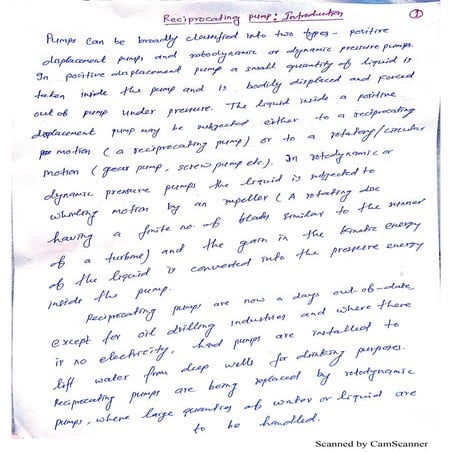 Reciprocating pump: Introduction
1
Pumps can be broadly classified into two types - positive
displacement pumps and rotodynamic or dynamic pressure pumps.
In positive displacement pump a small quantity of liquid is
taken inside the pump and is bodily displaced and forced
out of pump under pressure. The liquid inside a positive
displacement pump may be subjected either to a reciprocating
motion (a reciprocating pump) or to a rotatory/circular
motion (gear pump, screw pump etc). In rotodynamic or
dynamic pressure pumps the liquid is subjected to
whirling motion by an impeller (A rotating disc
having a finite no. of blades similar to the runner
of a turbine) and the gain in the kinetic energy
of the liquid is converted into the pressure energy
inside the pump.
Reciprocating pumps are now a days out-of-date
except for oil drilling industries and where there
is no electricity, hand pumps are installed to
lift water from deep wells for drinking purposes.
Reciprocating pumps are being replaced by rotodynamic
pumps, where large quantities of water or liquid are
to be handled.
Scanned by CamScanner